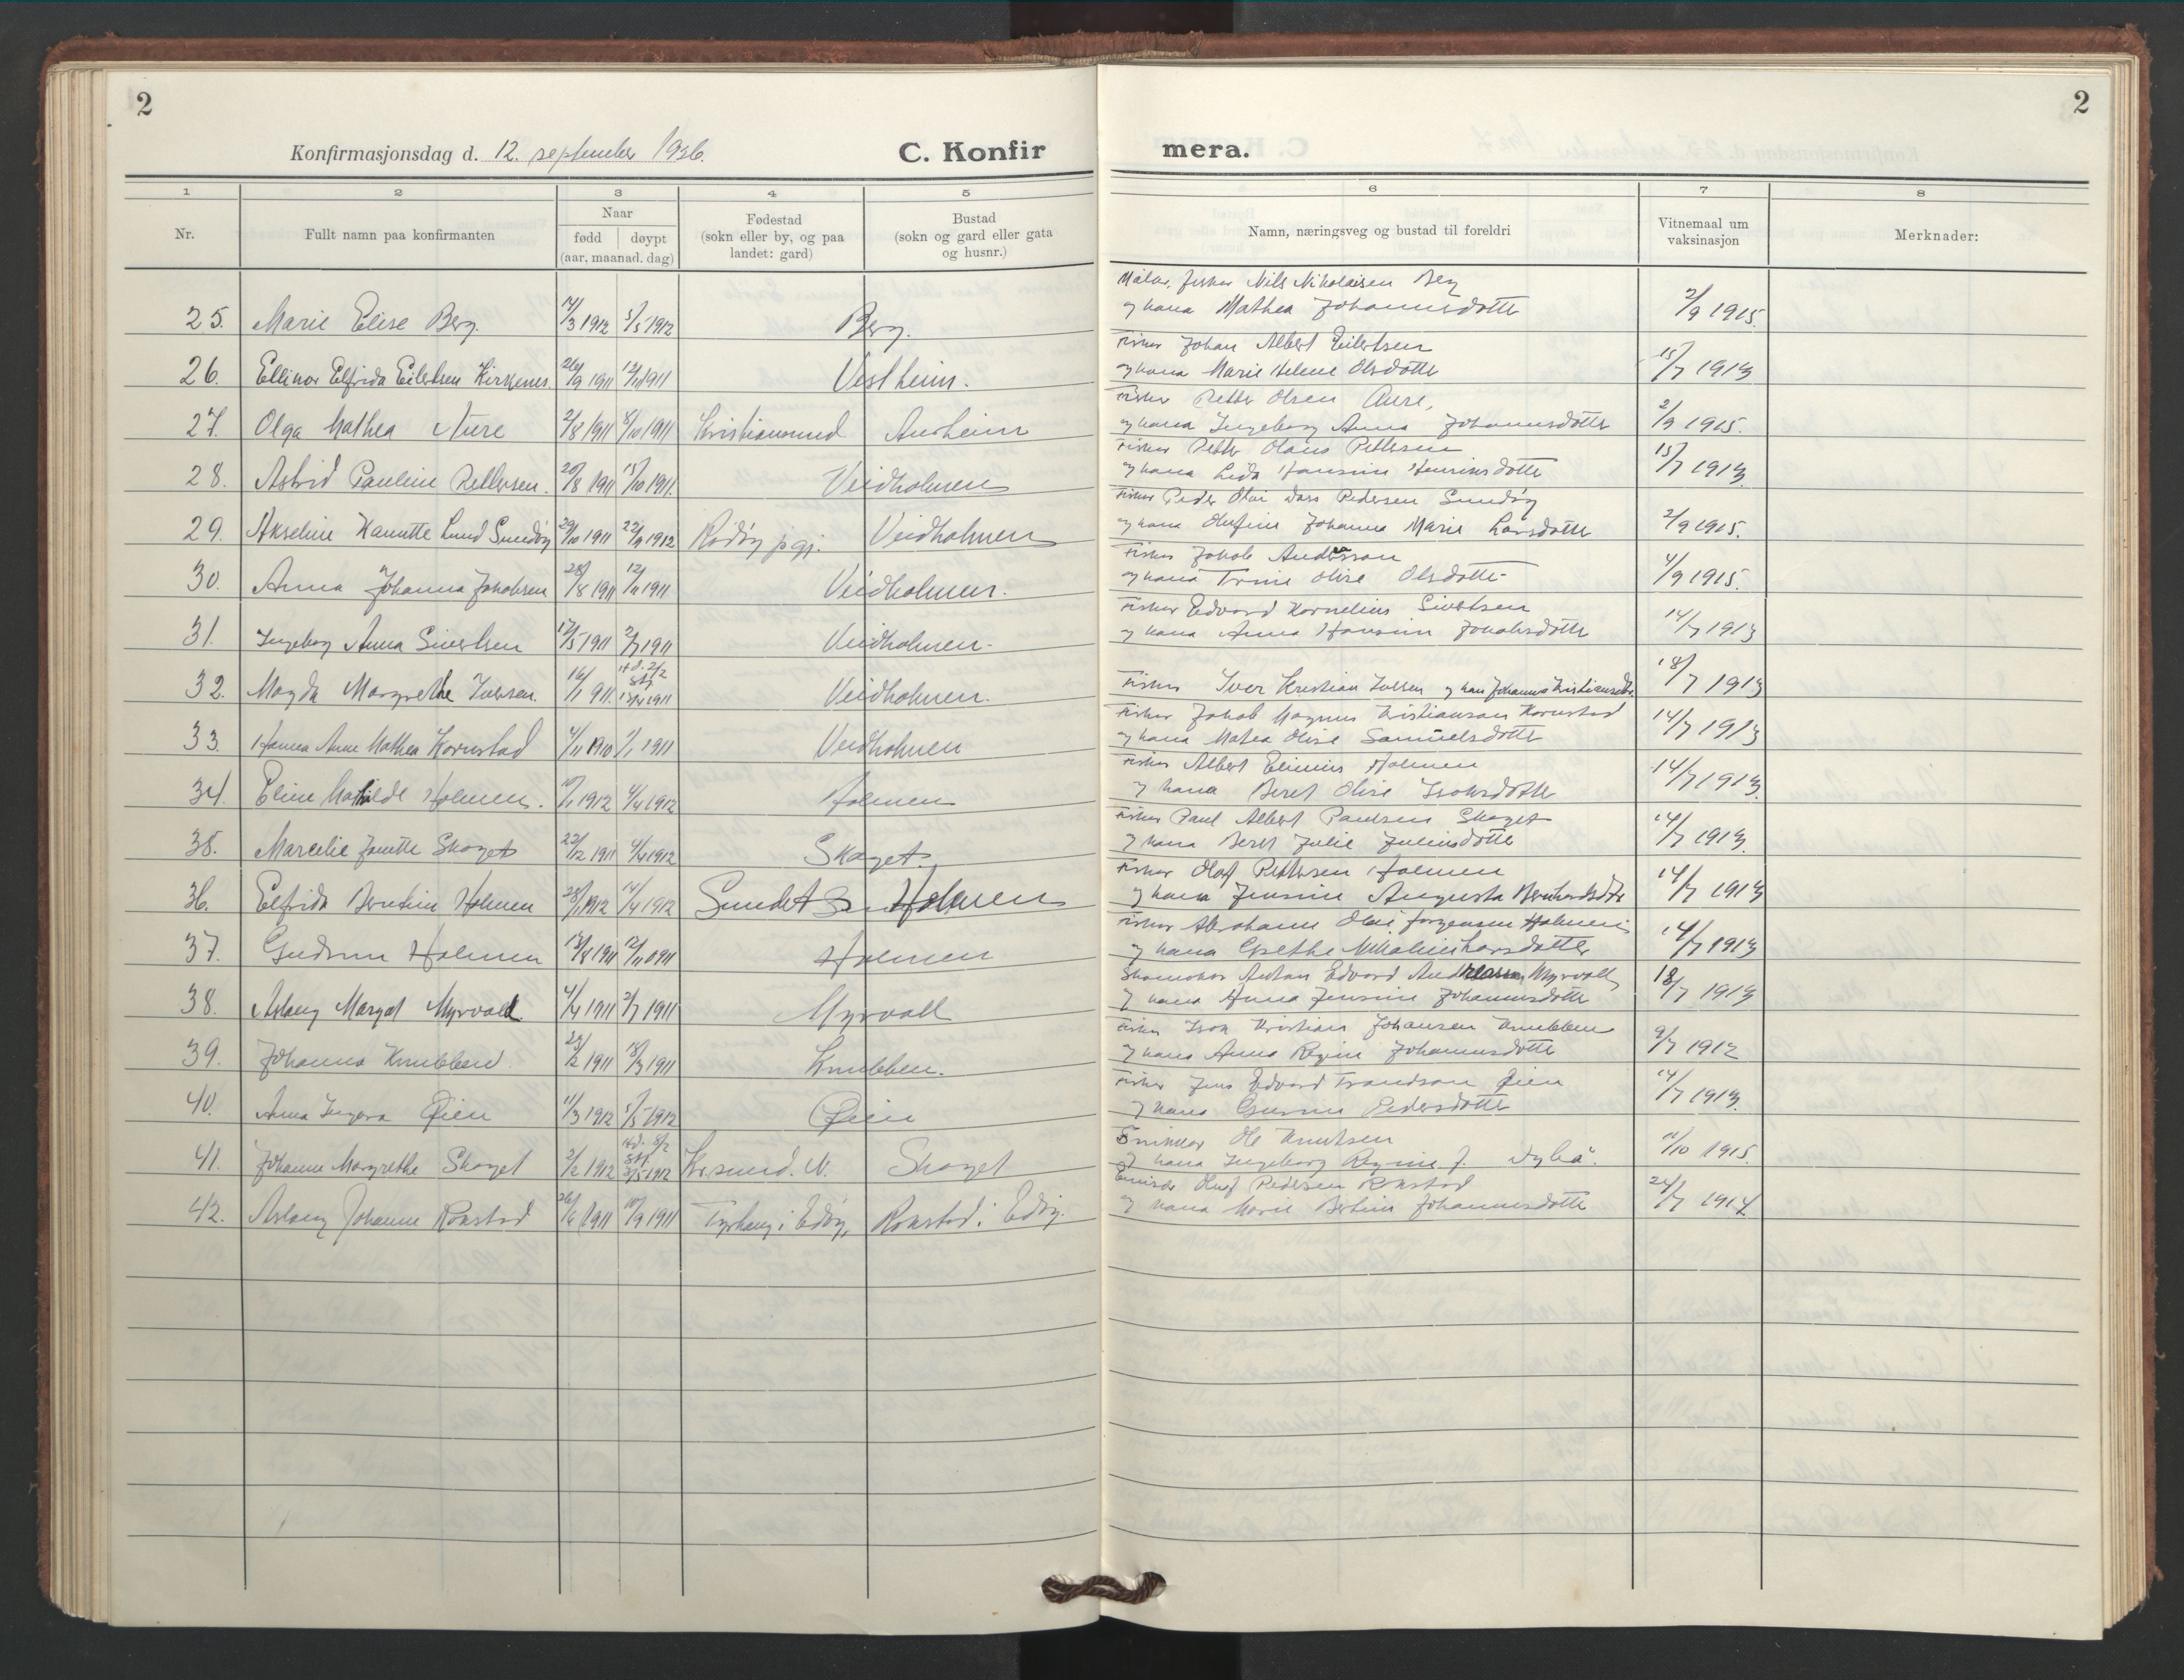 2
Konfirmasjonsdag d. 12. september 1926.
C. Konfir
mera.
2
1 2 3 4 5 6 7 8
Nr.
Fullt namn paa konfirmanten
Naar
fødd døypt
(aar, maanad. dag)
Fødestad
(sokn eller by, og paa
landet: gard)
Bustad
(sokn og gard eller gata
og husnr.)
Namn, næringsveg og bustad til foreldri
Vitnemaal um
vaksinasjon
Merknader:
25. Marie Elise Berg. 14/3 1912 5/5 1912 Berg.
fisker Nils Nikolaisen Berg
og kona Mathea Johannesdotter 2/9 1915.
26. Ellinor Elfrida Eilertsen Kirknes 26/9 1911 12/11 1911 Vestheim.
Fisker Johan Albert Eilertsen
og kona Marie Helene Olsdotter 15/7 1913
27. Olga Mathea Aure 2/8 1911 8/10 1911 Kristiansund Aurheim
Fisker Petter Olsen Aure,
og kona Ingeborg Anna Johannesdotter 2/9 1915.
28. Astrid Pauline Pettersen. 20/8 1911 15/10 1911. Veidholmen
Fisker Petter Olaus Pettersen
og kona Lida Hansine Henriksdotter 15/7 1913.
29. Akseline Hanette Lund Sundøy 29/10 1911 22/9 1912 Rødøy p.gj. Veidholmen
Fisker Peder Olai Dass Pedersen Sundøy
og kona Olufine Johanna Marie Larsdotter 2/9 1915.
30. Anna Johanna Jakobsen 28/8 1911 12/11 1911 Veidholmen.
Fisker Jakob Andersson
og kona Trine Olise Olsdotter 4/9 1915.
31. Ingeborg Anna Sivertsen 17/5 1911 2/7 1911 Veidholmen.
Fisker Edvard Kornelius Sivertsen
og kona Anna Hansine Jakobsdotter 14/7 1913
32. Magda Margrethe Iversen. 16/1 1911. Hd. 2/2 Stf. 1911 Veidholmen.
Fisker Iver Kristian Iversen og kona Johanna Kristiansdtr. 18/7 1913
33. Hanna Anne Mathea Kornstad 4/11 1910 1/1 1911 Veidholmen
Fisker Jakob Magnus Kristiansen Kornstad
og kona Matea Olise Samuelsdotter 14/7 1913
34. Eline Mathilde Holmen. 10/1 1912 4/4 1912 Holmen
Fisker Albert Elinius Holmen
og kona Beret Olise Isaksdotter 14/7 1913.
35. Marcelie Janette Skaget 22/12 1911 4/4 1912 Skaget.
Fisker Paul Albert Paulsen Skaget
og kona Beret Julie Juliusdotter 14/7 1913.
36. Elfrida Berntine Holmen 28/1 1912 14/4 1912 Sundet Holmen
Fisker Olaf Pettersen Holmen
og kona Jensine Augusta Bernhardsdtr 14/7 1913
37. Gudrun Holmen 13/8 1911 12/11 1911 Holmen
Fisker Abraham Olai Jørgensen Holmen
og kona Grethe Nikoline Larsdotter 14/7 1913
38. Aslaug Margot Myrvold 4/4 1911 2/7 1911 Myrvoll
Skomaker Anton Edvard Andreassen Myrvoll
og kona Anna Jensine Johannesdotter 18/7 1913
39. Johanna Knubben 23/2 1911 18/3 1911 Knubben.
Fisker Isak Kristian Johansen Knubben
og kona Anna Regine Johannesdotter 9/7 1912
40. Anna Ingera Øien 11/3 1912 5/5 1912 Øien
Fisker Jens Edvard Trondson Øien
og kona Gurine Pedersdotter 14/7 1913.
41. Johanne Margrethe Skaget 2/2 1912 Hd. 8/2 Stf. 1912 Kr.sund. N. Skaget
Snikkar Ole Knutsen
og kona Ingeborg Regine J. Dybå. 11/10 1915.
42. Aslaug Johanne Rokstad 26/6 1911 10/9 1911 Tyrhaug i Edøy, Rokstad i Edøy.
Oluf Pedersen Rokstad
og kona Marie Bertine Johannesdotter 24/7 1914